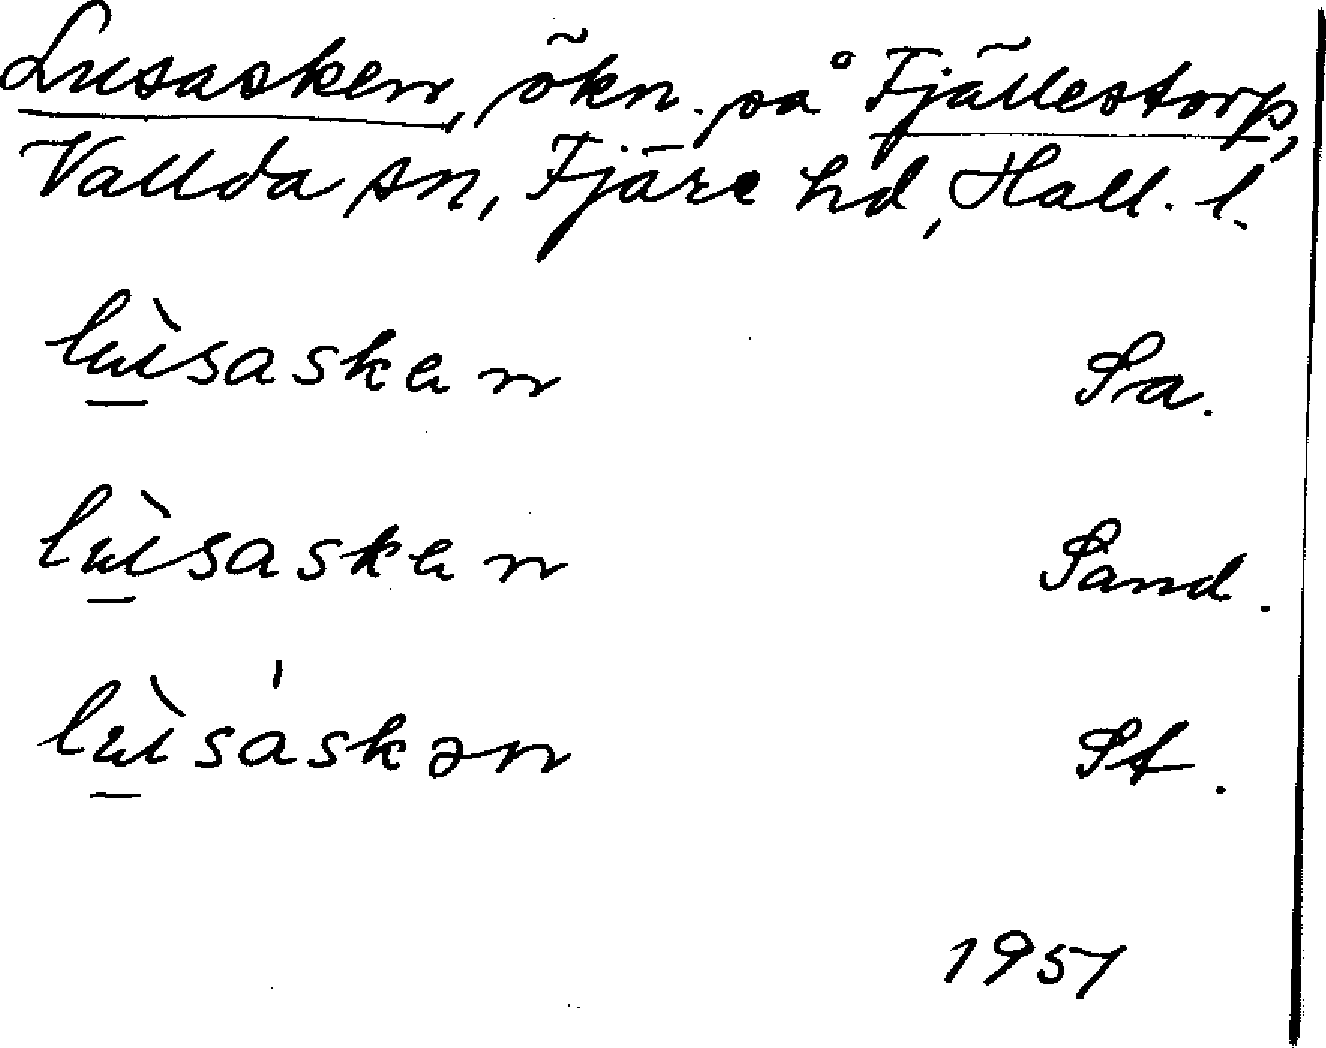 Lusasken, ökn. på Fjällestorp,
Vallda sn, Fjäre hd, Hall. l.
lù̲sasken Sa.
lù̲sasken Sand.
lù̲sáskən St.
1951